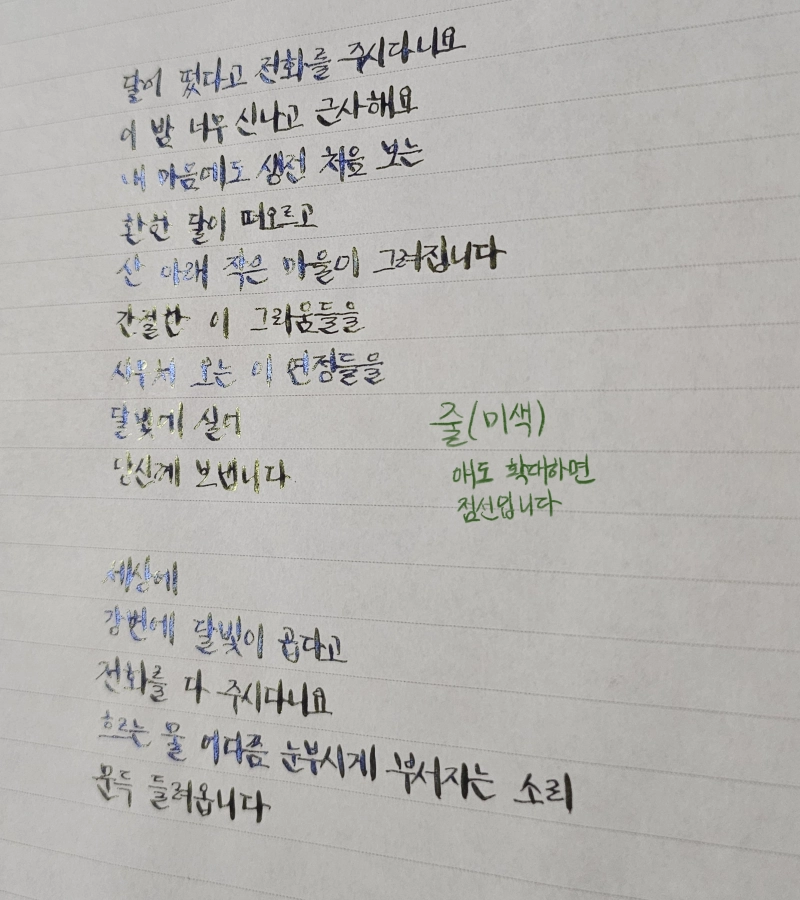 달이 떴다고 전화를 주시다니요
이 밤 너무 신나고 근사해요
내 마음에도 생전 처음 보는
환한 달이 떠오르고
산 아래 작은 마을이 그려집니다
간절한 이 그리움들을
사무쳐 오는 이 연정들을
달빛에 실어
당신께 보냅니다
줄(미색)
얘도 확대하면
점선입니다
세상에
강변에 달빛이 곱다고
전화를 다 주시다니요
흐르는 물 어디쯤 눈부시게 부서지는 소리
문득 들려옵니다